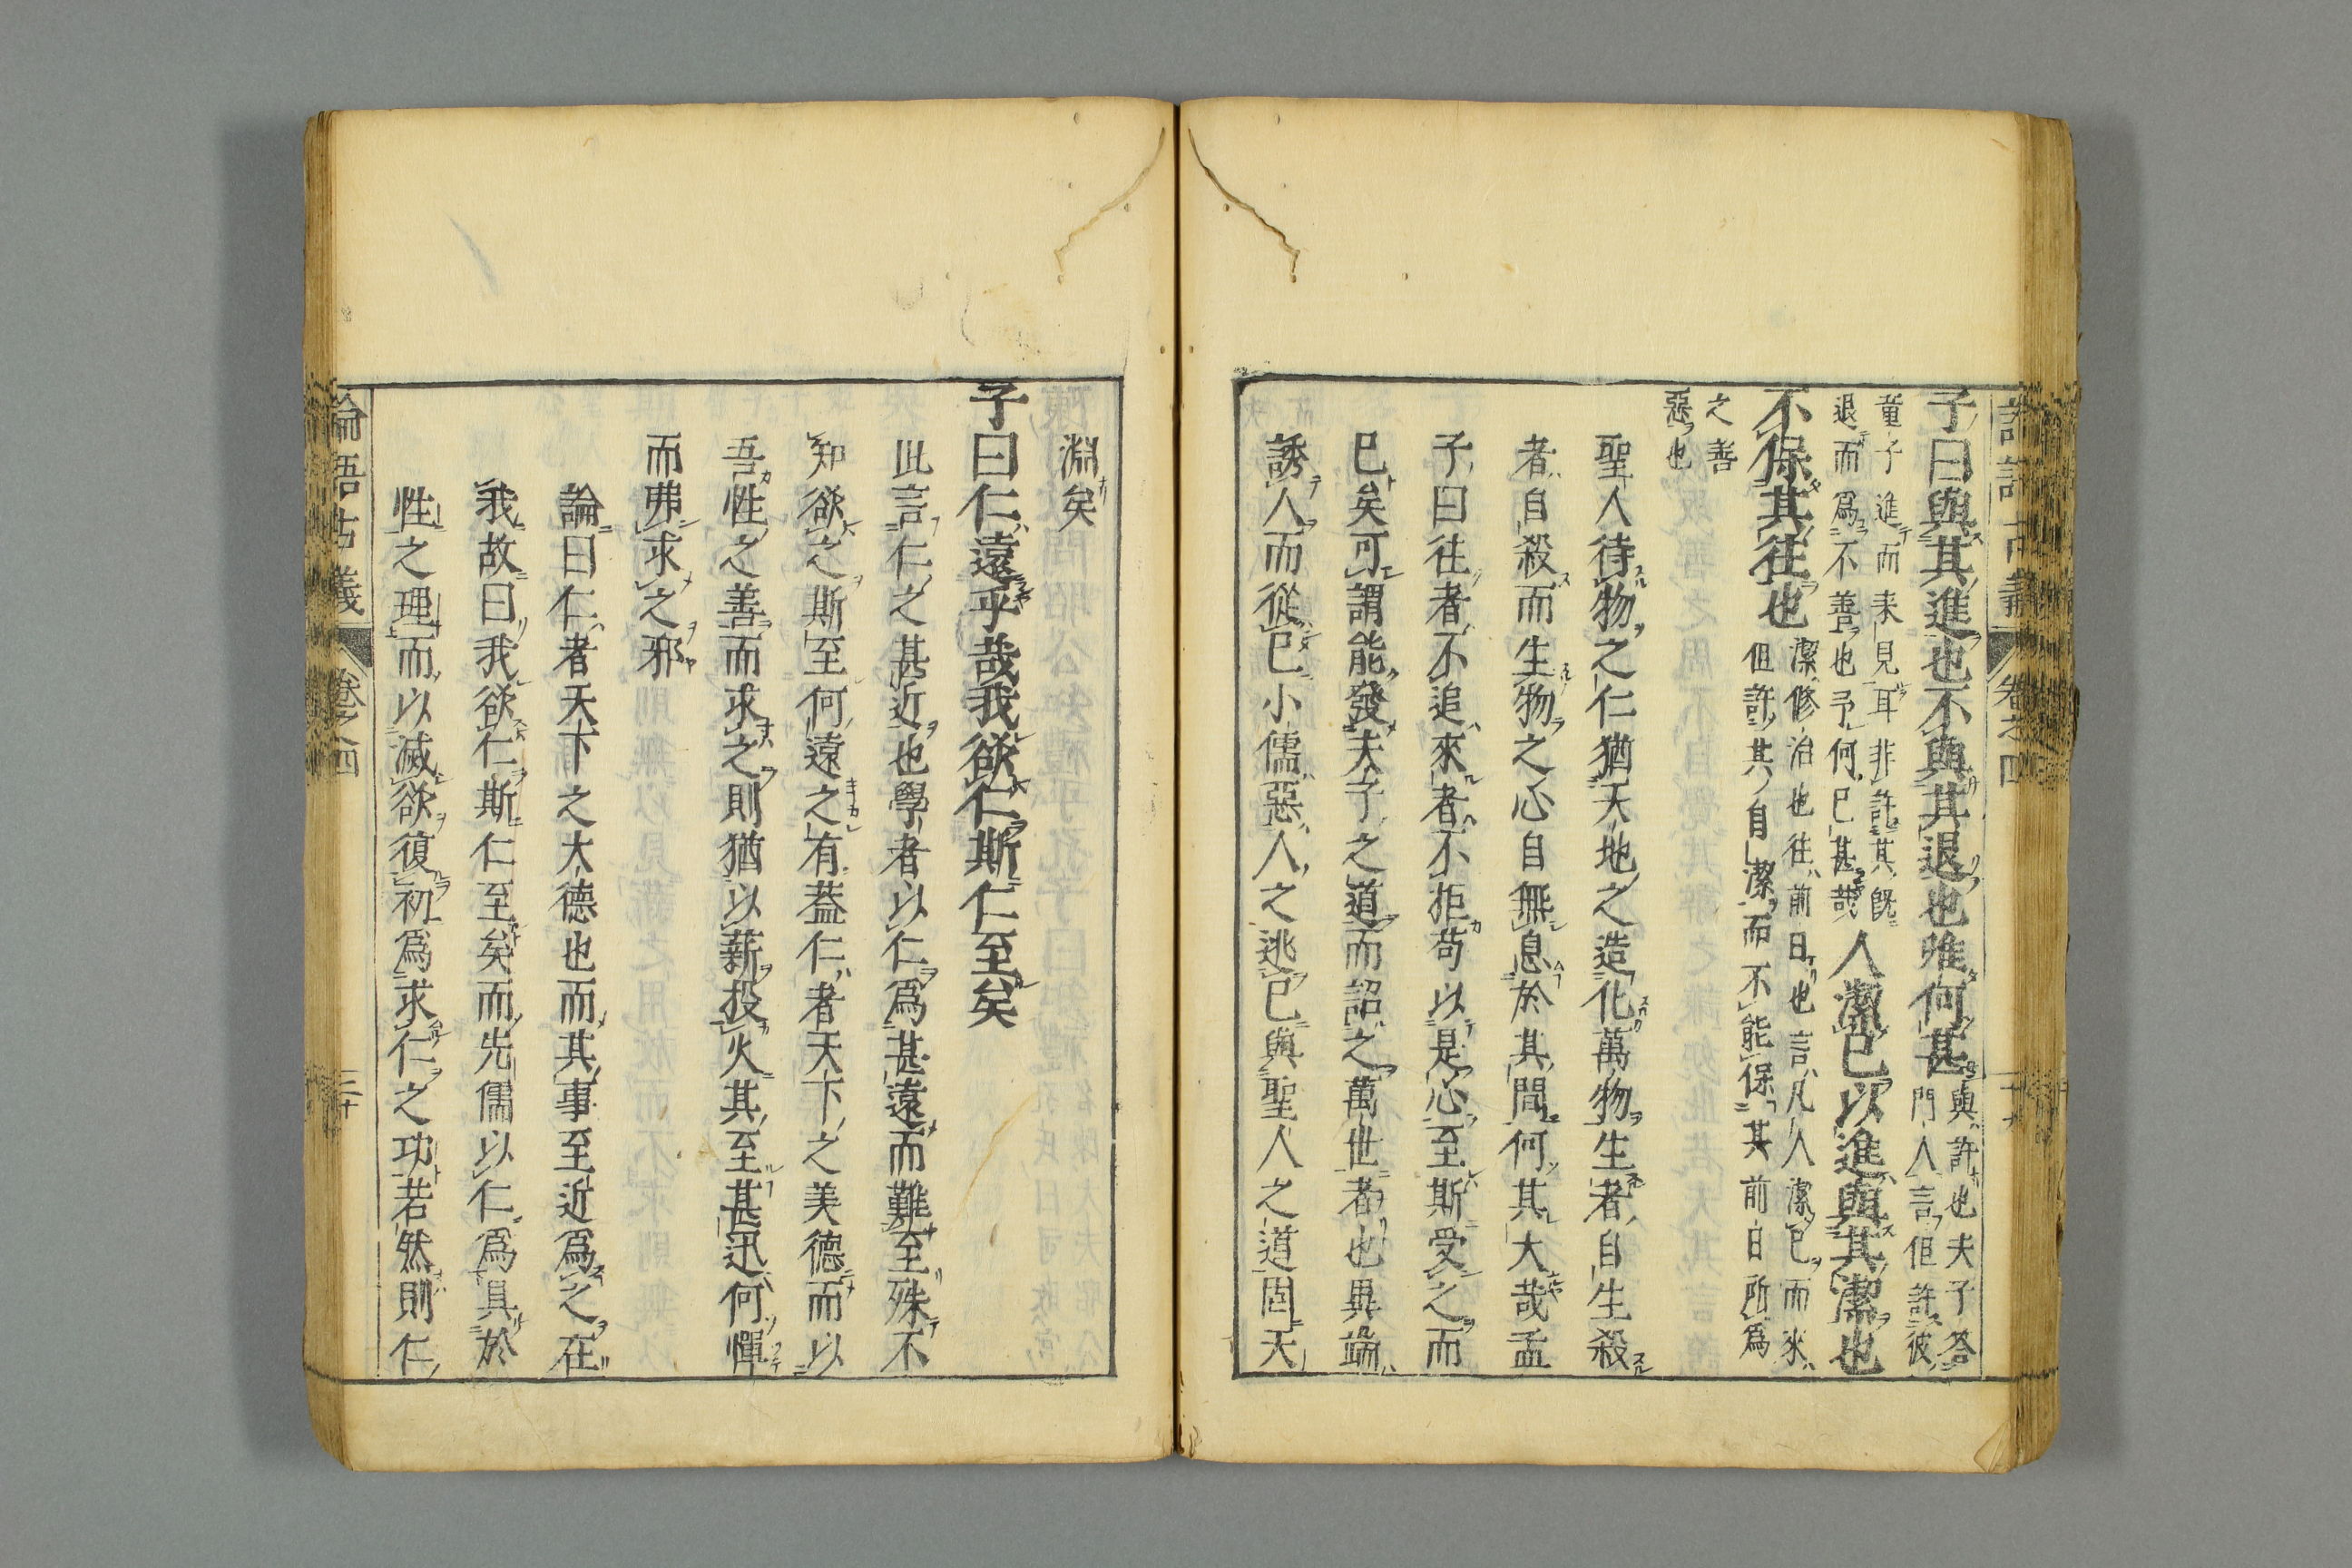 子曰與其進也不與其退也唯何甚與許也夫子答
門人言但許彼
童子進而來見耳非許其既
退而爲不善也予何已甚哉人潔已以進與其潔也
不保其往也潔修治也往前日也言凡人潔已而來
但許其自潔而不能保其前日所爲
之善
惡也
聖人待物之仁猶天地之造化萬物生者自生殺
者自殺而生物之心自無息於其間何其大哉孟
子曰往者不追來者不拒苟以是心至斯受之而
已矣可謂能發夫子之道而詔之萬世者也異端
誘人而從已小儒惡人之逃已與聖人之道固天
淵矣
子曰仁遠乎哉我欲仁斯仁至矣
此言仁之甚近也學者以仁爲甚遠而難至殊不
知欲之斯至何遠之有蓋仁者天下之美德而以
吾性之善而求之則猶以薪投火其至甚迅何憚
而弗求之邪
論曰仁者天下之大德也而其事至近爲之在
我故曰我欲仁斯仁至矣而先儒以仁爲具於
性之理而以滅欲復初爲求仁之功若然則仁
論語古義 卷之四 三十